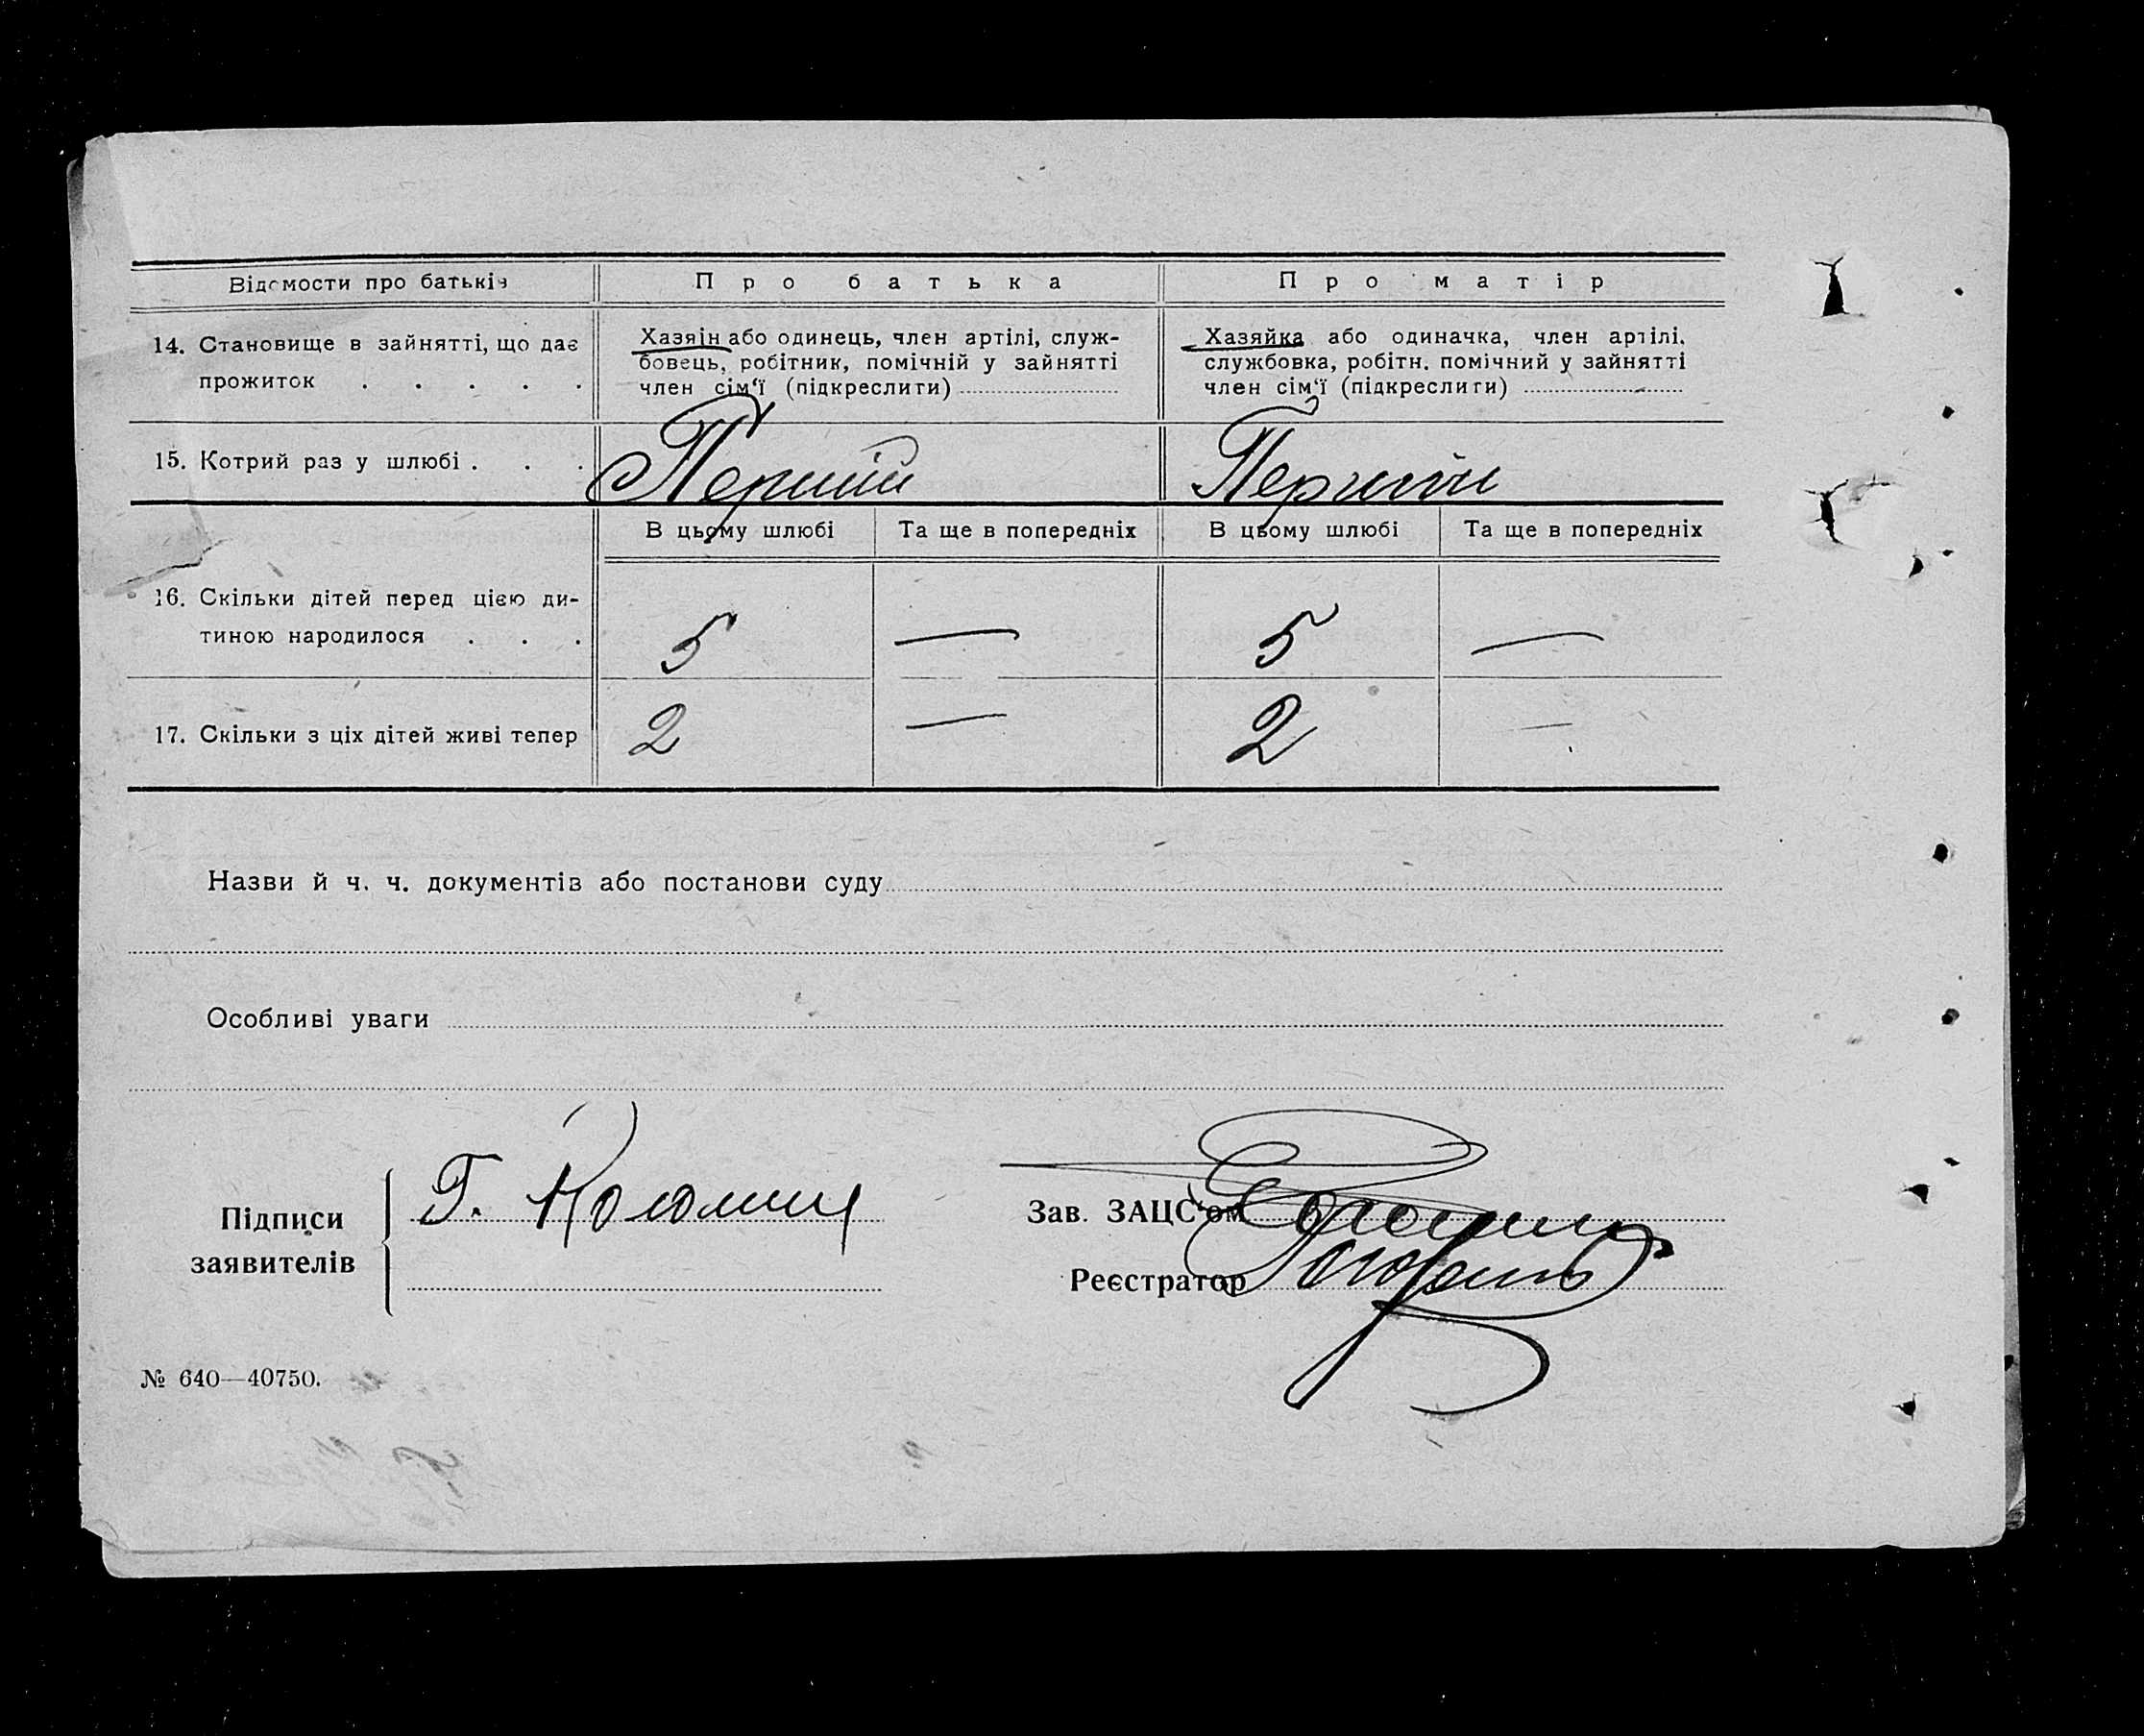 Відомости про батьків Про батька Про матір
14. Становище в зайнятті, що дає
прожиток . . . . .
Хазяїн або одинець, член артілі, служ-
бовець, робітник, помічній у зайнятті
член сім‘ї (підкреслити)
Хазяйка або одиначка, член артілі,
службовка, робітн. помічний у зайнятті
член сім‘ї (підкреслити)
15. Котрий раз у шлюбі . . . Перший Перший
В цьому шлюбі Та ще в попередніх В цьому шлюбі Та ще в попередніх
16. Скільки дітей перед цією ди-
тиною народилося . . . 5 — 5 —
17. Скільки з ціх дітей живі тепер 2 — 2 —
Назви й ч. ч. документів або постанови суду
Особливі уваги
Підписи
заявителів
Г. Коломиец
Зав. ЗАЦС‘ом
Реєстратор
№ 640—40750.